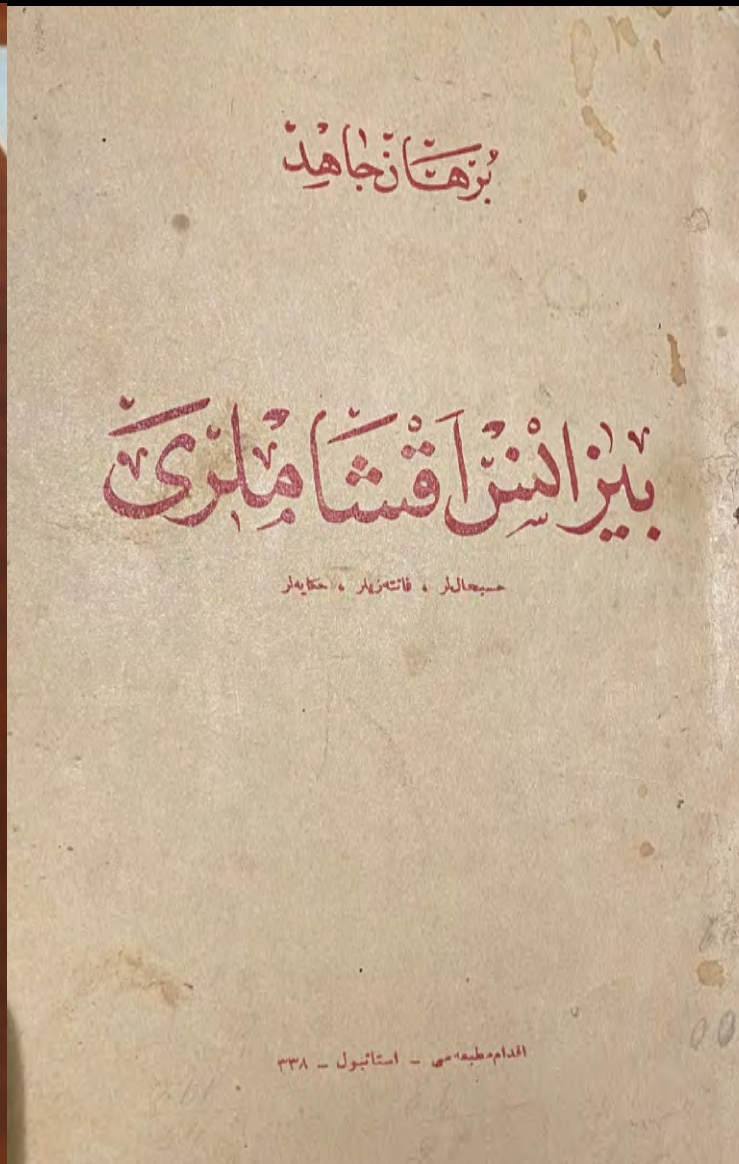 برهان جاهد
بيزانس اقشاملرى
حسبحاللر ، فانتەزيلر ، حكايەلر
اقدام مطبعەسى – استانبول – ٣٣٨